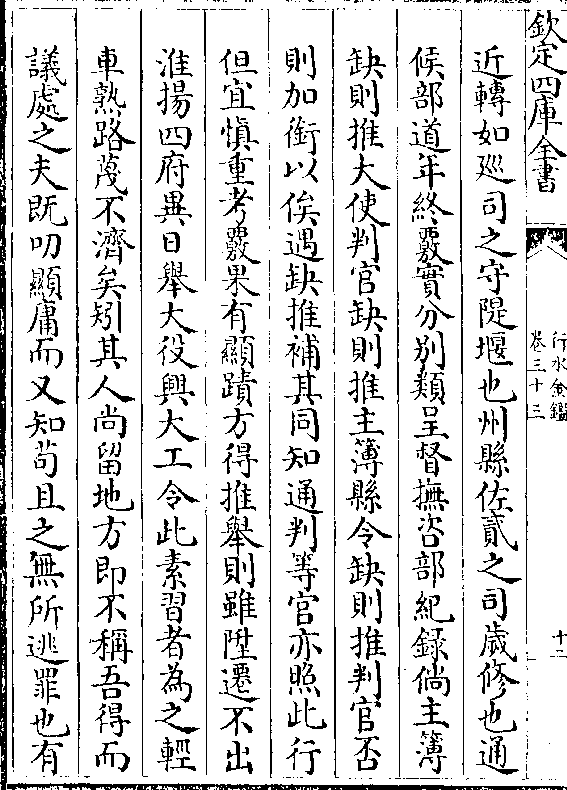 欽定四庫全書
行水金鑑
卷三十三
十二
近轉如廵司之守隄堰也州縣佐貳之司歲修也通
候部道年終覈實分別類呈督撫咨部紀錄倘主簿
缺則推大使判官缺則推主簿縣令缺則推判官否
則加銜以俟遇缺推補其同知通判等官亦照此行
但宜慎重考覈果有顯蹟方得推舉則雖陞遷不出
淮揚四府異日舉大役興大工令此素習者為之輕
車熟路蔑不濟矣矧其人尚留地方即不稱吾得而
議處之夫既叨顯庸而又知苟且之無所逃罪也有